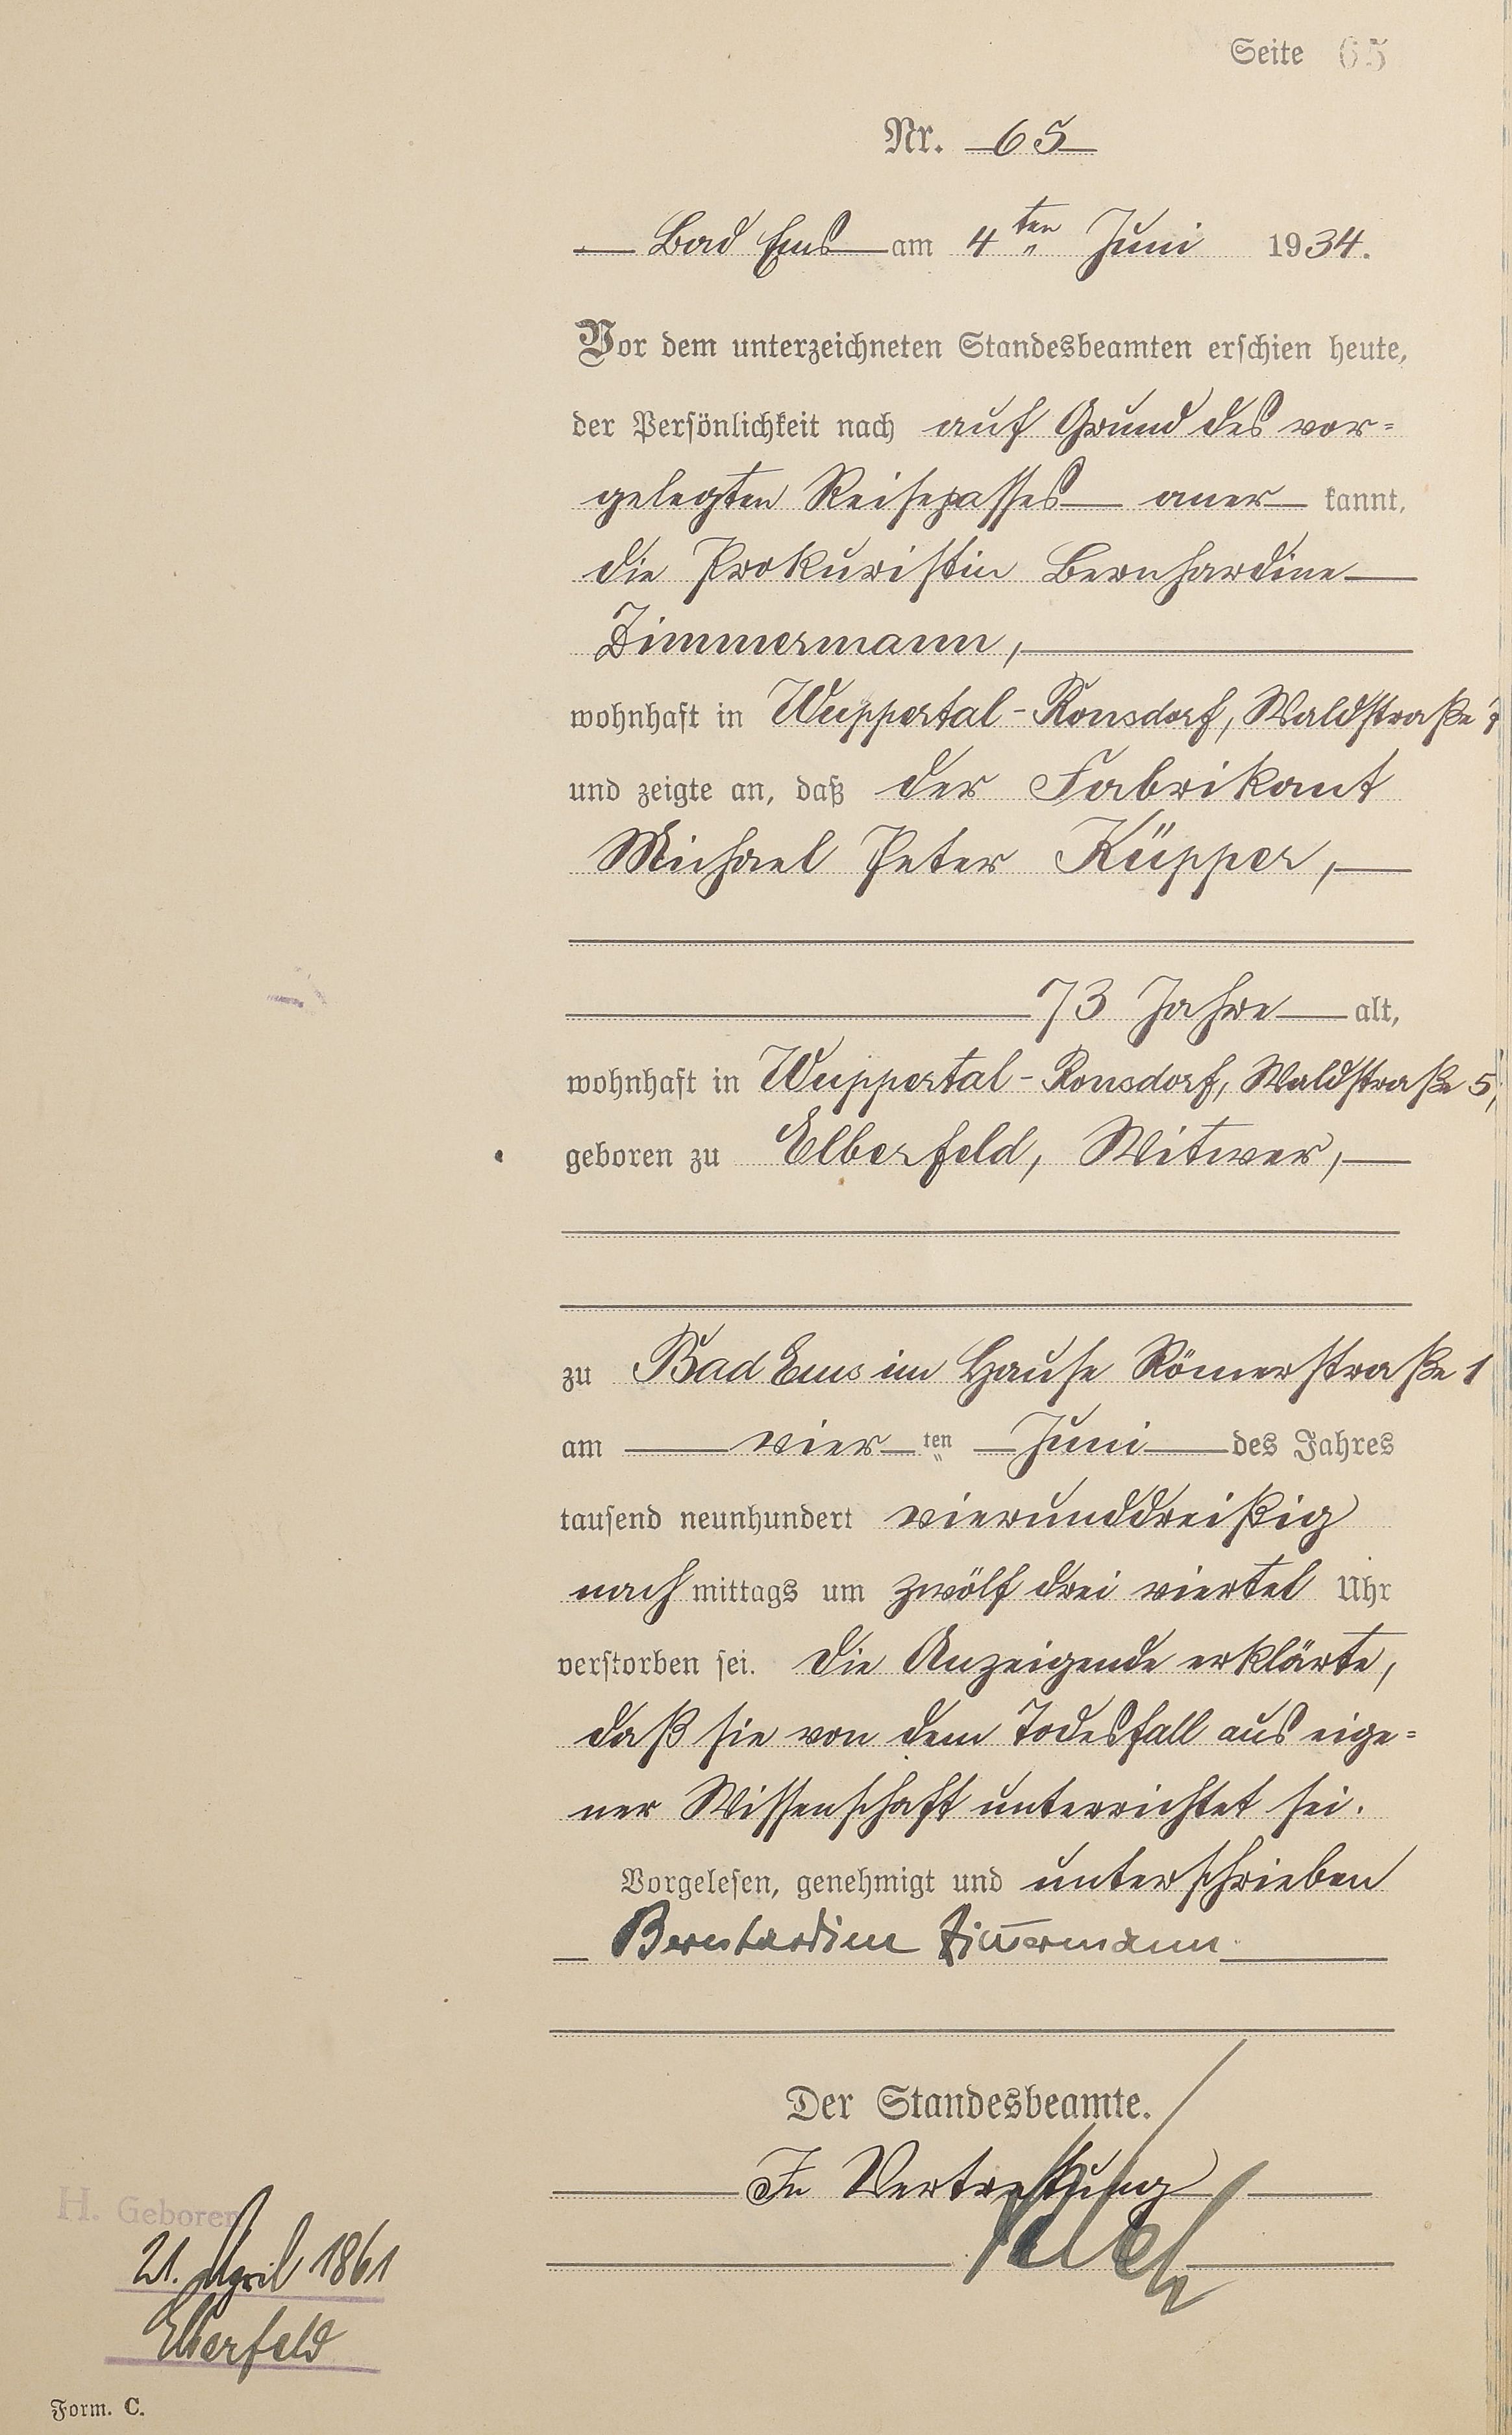 Seite 65
Nr. 65
Bad Ems am 4ten Juni 1934.
Vor dem unterzeichneten Standesbeamten erschien heute,
der Persönlichkeit nach auf Grund des vor=
gelegten Reisepasses aner kannt,
die Prokuristin Bernhardine
Zimmermann,
wohnhaft in Wuppertal-Ronsdorf, Waldstraße
und zeigte an, daß der Fabrikant
Michael Peter Küpper,
73 Jahre alt,
wohnhaft in Wuppertal-Ronsdorf, Waldstraße 5,
geboren zu Elberfeld, Witwer,
zu Bad Ems im Hause Römerstraße 1
am vier ten Juni des Jahres
tausend neunhundert vierunddreißig
nach mittags um zwölf drei viertel Uhr
verstorben sei. Die Anzeigende erklärte,
daß sie von dem Todesfall aus eige=
ner Wissenschaft unterrichtet sei.
Vorgelesen, genehmigt und unterschrieben
Bernhardine Zim̅ermann.
Der Standesbeamte.
In Vertretung
H. Geboren
21. April 1861
Elberfeld
Form. C.